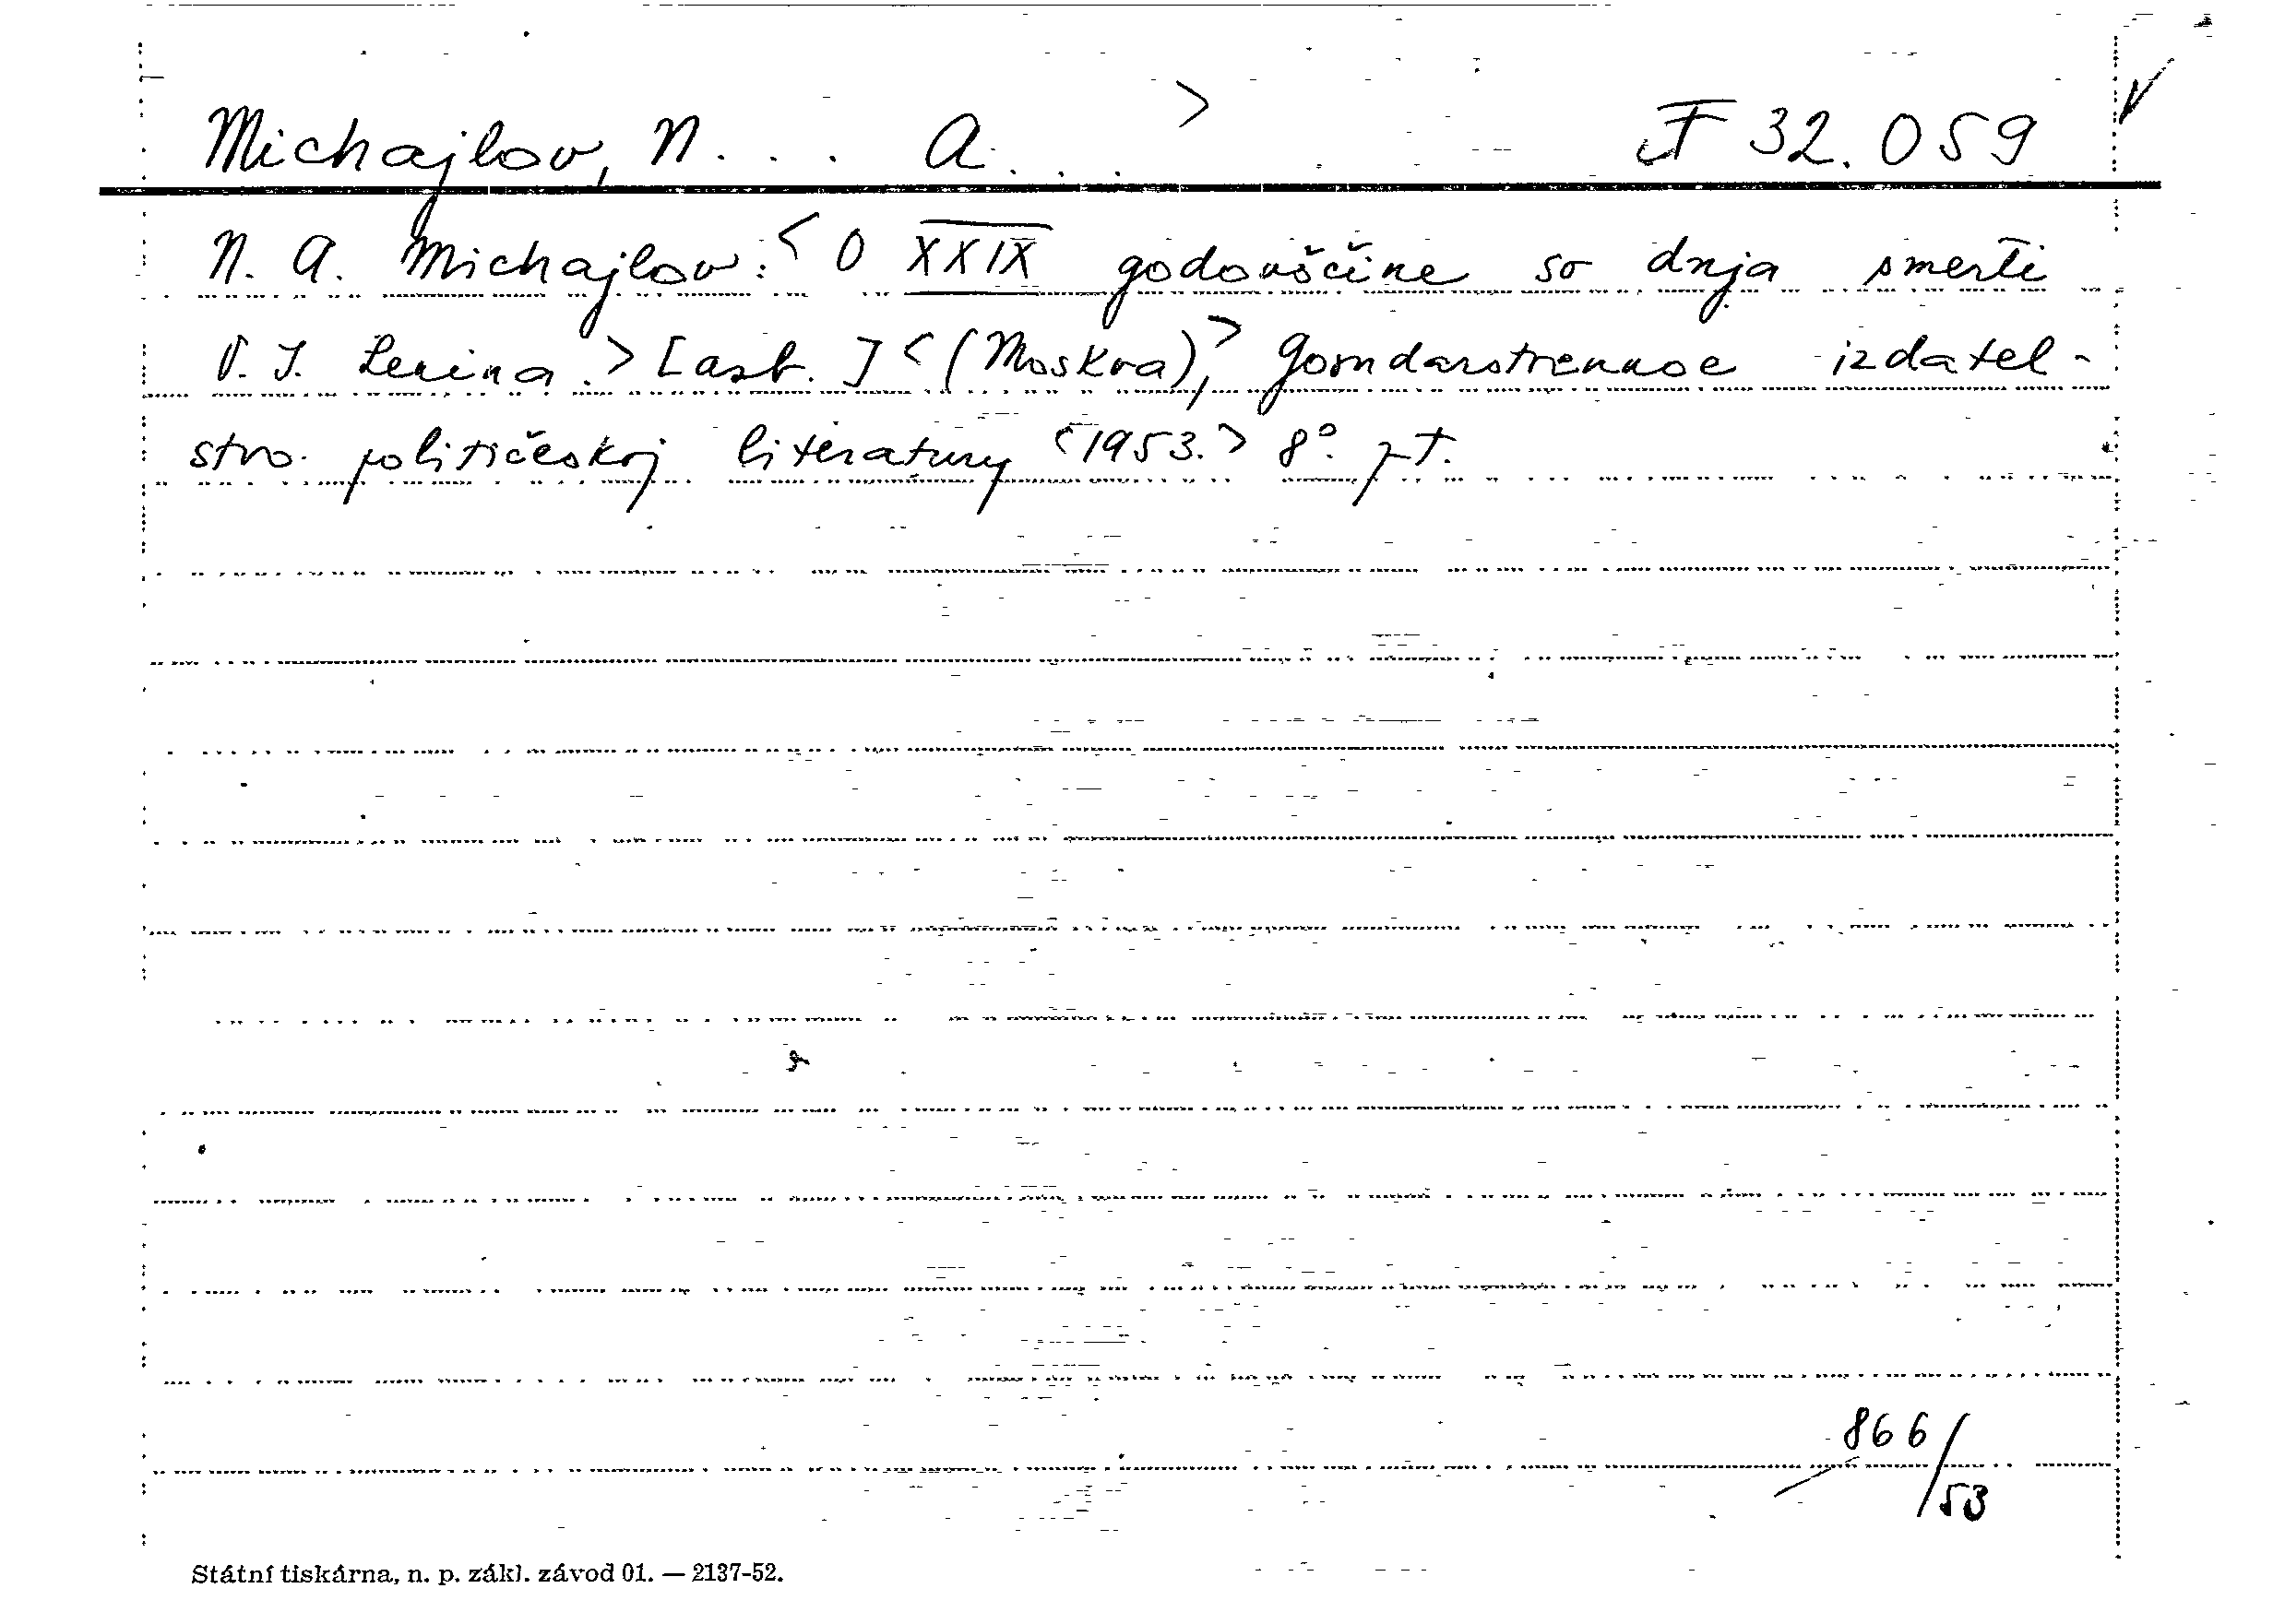 Michajlov, N. . . A. . . > F 32.059
N. A. Michajlov: < O XXIX godovščine so dnja smerti
V. I. Lenina. > [azb.] < (Moskva), > Gosudarstvennoe izdatel-
stvo političeskoj literatury < 1953. > 8°. pt.
866/53
Státní tiskárna, n. p. zákl. závod 01. — 2137-52.